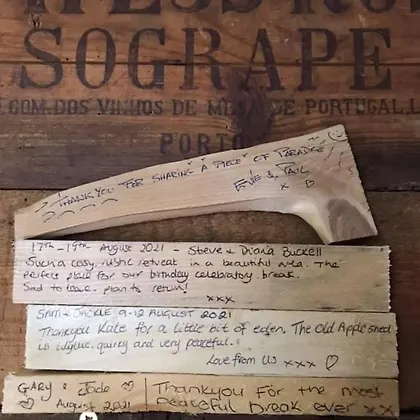 SOGRAPE
COM.DOS VINHOS DE MESA DE PORTUGAL L
PORTO
THANK YOU FOR SHARING A PIECE OF PARADISE!
& PAUL
x ♡
17th - 19th August 2021 - Steve & Diana Buckell
Such a cosy, rustic retreat in a beautiful area. The
perfect place for our birthday celebratory break.
Sad to leave. plan to return!
xxx
SAM & JACKIE 9-12 AUGUST 2021
Thankyou Kate for a little bit of eden. The Old Apple shed
is idyllic, quirky and very peaceful.
Love from Us xxx ♡
GARY & Jade ♡ Thankyou for the most
August 2021 Peaceful break ever xxx